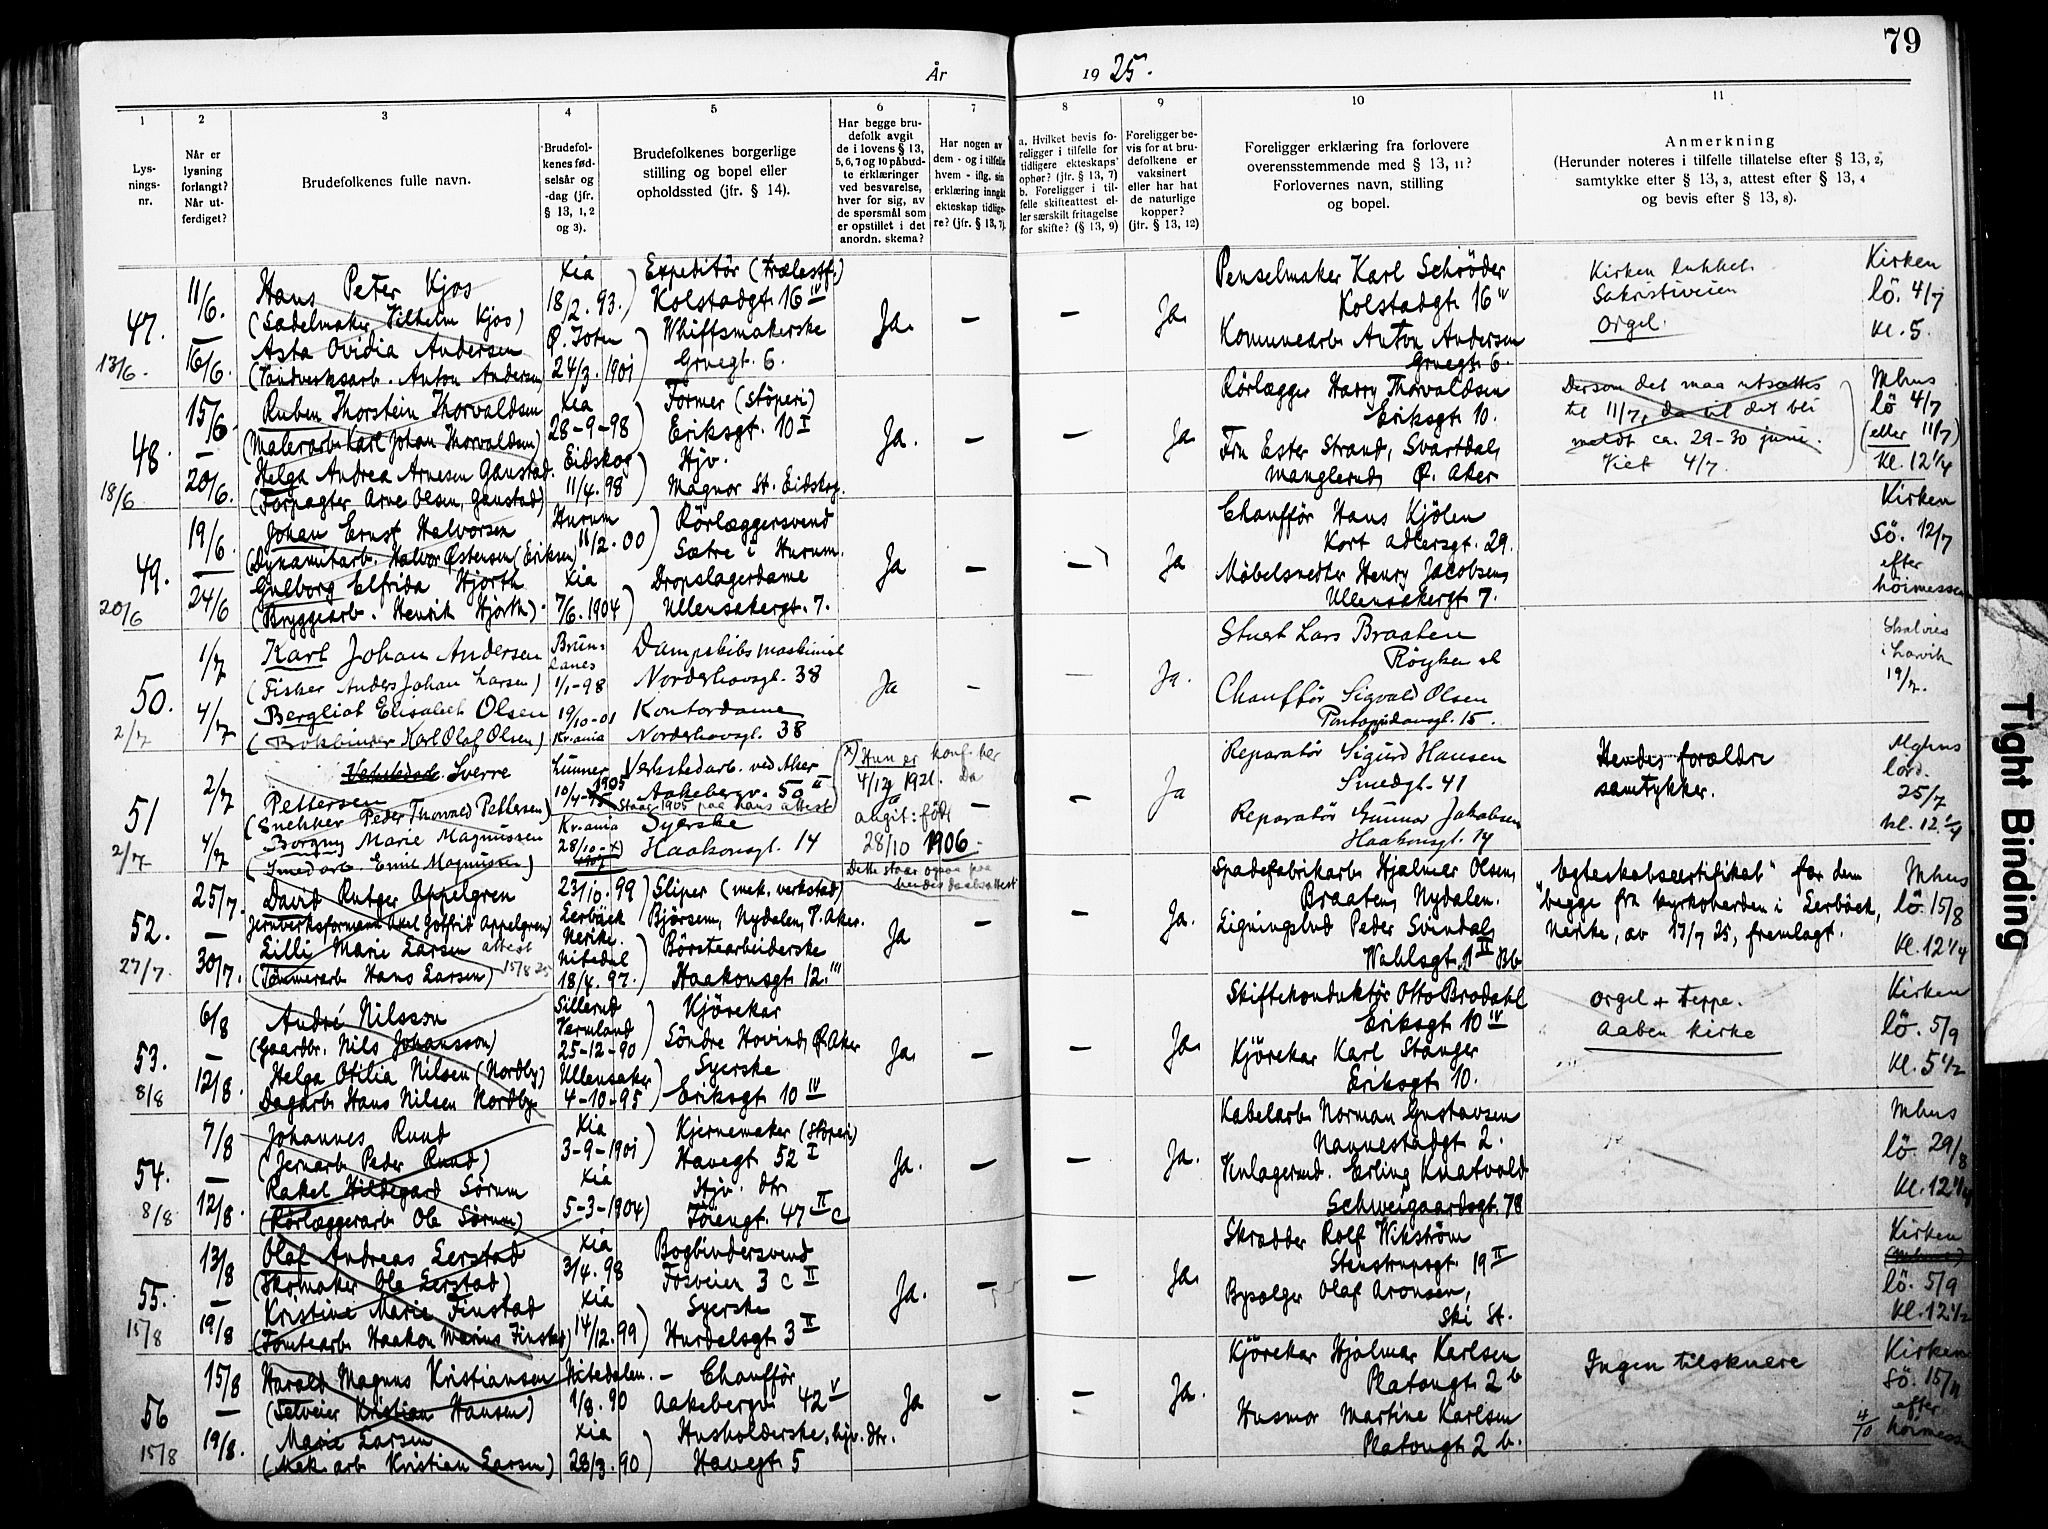 79
År 1925.
1
2
3
4
5
6
7
8
9
10
11
Lys-
nings-
nr.
Når er
lysning
forlangt?
Når ut-
ferdiget?
Brudefolkenes fulle navn.
Brudefol-
kenes fød-
selsår og
-dag (jfr.
§ 13, 1, 2
og 3).
Brudefolkenes borgerlige
stilling og bopel eller
opholdssted (jfr. § 14).
Har begge bru-
defolk avgit
de i lovens § 13,
5, 6, 7 og 10 påbud-
te erklæringer
ved besvarelse,
hver for sig, av
de spørsmål som
er opstillet i det
anordn. skema?
Har nogen av
dem - og i tilfelle
hvem - iflg. sin
erklæring inngåt
ekteskap tidlige-
re? (jfr. § 13, 7).
a. Hvilket bevis fo-
religger i tilfelle for
tidligere ekteskaps
ophør? (jfr. § 13, 7)
b. Foreligger i til-
felle skifteattest el-
ler særskilt fritagelse
for skifte? (§ 13, 9)
Foreligger be-
vis for at bru-
defolkene er
vaksinert
eller har hat
de naturlige
kopper?
(jfr. § 13, 12)
Foreligger erklæring fra forlovere
overensstemmende med § 13, 11?
Forlovernes navn, stilling
og bopel.
Anmerkning
(Herunder noteres i tilfelle tillatelse efter § 13, 2,
samtykke efter § 13, 3, attest efter § 13, 4
og bevis efter § 13, 8).
47.
13/6.
11/6.
—
16/6.
Hans Peter Kjos
(Sadelmaker Vilhelm Kjos)
Asta Ovidia Andersen
(Tandverksarb. Anton Andersen)
Kia
18/2. 93.
Ø. Toten
24/3. 1901
Expeditör (Trælastf.)
Kolstadgt. 16 IV
Whiftsmakerske
Gruegt. 6.
Ja.
—
—
Ja.
Penselmaker Karl Schröder
Kolstadgt. 16 IV
Kommunearb. Anton Andersen
Gruegt. 6.
Kirken lukket
Sakristiveien
Orgel.
Kirken
lö. 4/7
kl. 5.
48.
18/6
15/6.
—
20/6.
Ruben Thorstein Thorvaldsen
(Malerarb. Karl Johan Thorvaldsen)
Helga Andrea Arnesen Gaustad.
(Forpagter Arne Olsen Gaustad)
Kia
28-9-98
Eidskog
11/4. 98
Former (Stöperi)
Eriksgt. 10 I
Hjv.
Magnor St. Eidskog.
Ja.
—
—
Ja.
Rörlægger Harry Thorvaldsen
Eriksgt. 10.
Fru Ester Strand, Svartdal,
Manglerud, Ø. Aker
Dersom det maa utsættes
til 11/7, da vil det bli
meldt ca. 29-30 juni.
Viet 4/7.
Mhus
lö 4/7
(eller 11/7)
kl. 12 1/4
49.
20/6
19/6.
—
24/6
Johan Ernst Halvorsen
(Dynamitarb. Halvor Østensen (Eriksen)
Gulborg Elfrida Hjorth
(Bryggearb. Henrik Hjorth).
Hurum
11/2. 00
Kia
7/6. 1904
Rörlæggersvend
Sætre i Hurum.
Dropslagerdame
Ullensakergt. 7.
Ja
—
—
Ja
Chaufför Hans Kjölen
Kort Adlersgt. 29.
Möbelsnedker Henry Jacobsen,
Ullensakergt 7.
Kirken
Sö. 12/7
efter
höimessen
50.
2/7
1/7
4/7
Karl Johan Andersen
(Fisker Anders Johan Larsen)
Bergliot Elisabeth Olsen
(Bokbinder Karl Olaf Olsen)
Brun-
lanes
1/1-98
19/10-01
Kr.ania
Dampskibsmaskinist
Norderhovsgt. 38
Kontordame
Norderhovsgt. 38
Ja
-
—
Ja.
Stuert Lars Braaten
Røyken st
Chauffør Sigvald Olsen
Pontoppidansgt. 15.
Skal vies
i Larvik
19/7.
51
2/7
2/7
4/7
Verkstedarb. Sverre
Pettersen
(Snekker Peder Thorvald Pettersen)
Borgny Marie Magnussen
(Smedarb. Emil Magnussen)
Lunner
1905
10/4-
Kr.ania
28/10-x)
Verkstedarb. ved Aker
Aakebergv. 50 II
Staar 1905 paa hans attest
Syerske
Haakonsgt. 14
x) Hun er konf. her
4/12 1921. Da
angit: født
28/10 1906.
Dette staar ogsaa paa
hendes daabsattest
—
Ja
Reparatør Sigurd Hansen
Smedgt. 41
Reparatør Gunnar Jakobsen
Haakonsgt. 14
Hendes forældre
samtykker.
Mghus
lørd.
25/7
kl. 12 1/4
52.
27/7.
25/7.
—
30/7.
David Rutger Appelgren
Jernverksformann Axel Gotfrid Appelgren)
Lilli Marie Larsen attest
(Tömmerarb. Hans Larsen) 15/8 25
23/10. 99
Lerbäck
Nerike.
Nitedal
18/4. 97.
Sliper (mek. verksted)
Bjørsem, Nydalen, V. Aker.
Börstearbeiderske
Haakonsgt 12. III
Ja
—
—
Ja.
Spadefabrikarb. Hjalmer Olsen,
Braaten, Nydalen.
Ligningsbud Peder Svendal,
Wahlsgt. 1 II Bb
"Egteskabscertifikat" for dem
begge fra kyrkoherden i Lerbäck,
Nerike, av 17/7 25, fremlagt.
Mhus
lö. 15/8
kl. 12 1/4
53.
8/8
6/8
—
12/8.
André Nilsson
(Gaardbr. Nils Johansson)
Helga Otilia Nilsen (Nordby)
Dagarb. Hans Nilsen Nordby
Sillerud
Vermland
25-12-90
Ullensaker
4-10-95
Kjörekar
Söndre Hovind, Ø. Aker
Syerske
Eriksgt 10 IV
Ja.
—
—
Ja.
Skiftekonduktör Otto Brodahl
Eriksgt 10 IV
Kjörekar Karl Stanger
Eriksgt 10.
Orgel + Teppe.
Aaben kirke
Kirken
lö. 5/9
kl. 5 1/2
54.
8/8
7/8
—
12/8.
Johannes Ruud
(Jernarb. Peder Ruud)
Rakel Hildegard Sörum
(Rörlæggerarb. Ole Sörum)
Kia
3-9-1901
Kia
5-3-1904)
Kjernemaker (Stöperi)
Havegt 52 I
Hjv. dtr
Töiengt. 47 II c
Ja.
—
—
Ja.
Kabelarb. Norman Gustavsen
Nannestadgt 2.
Kullagerud. Erling Knatvold
Schweigaardsgt. 78
Mhus
lö. 29/8
kl. 12 1/4
55.
15/8
13/8
—
19/8
Olaf Andreas Lerstad
(Skomaker Ole Lerstad)
Kristine Marie Finstad
(Tomtearb. Haakon Marius Finstad)
Kia
3/4. 98
Kia
14/12. 99)
Bogbindersvend
Fosveien 3 c II
Syerske
Hurdalsgt. 3 II
Ja.
—
—
Ja.
Skrædder Rolf Wikström
Stenstrupsgt. 19 II
Bysælger Olaf Aronsen,
Ski St.
Kirken
(Mhuset)
lö. 5/9
kl. 12 1/2
56
15/8
15/8
—
19/8.
Harald Magnus Kristiansen
(Setveier Kristian Hansen)
Marie Larsen
(Mek. arb. Kristian Larsen)
Nitedalen.
1/3. 90
Kia
28/3. 90)
— Chaufför
Aakebergv. 42 V
Husholderske, hjv. dtr.
Havegt 5
Ja
—
—
Ja.
Kjörekar Hjalmar Karlsen
Platougt 2 b
Husmor Martine Karlsen
Platougt 2 b.
Ingen tilskuere
Kirken
Sö.
efter
4/10 höimessen
Tight Binding